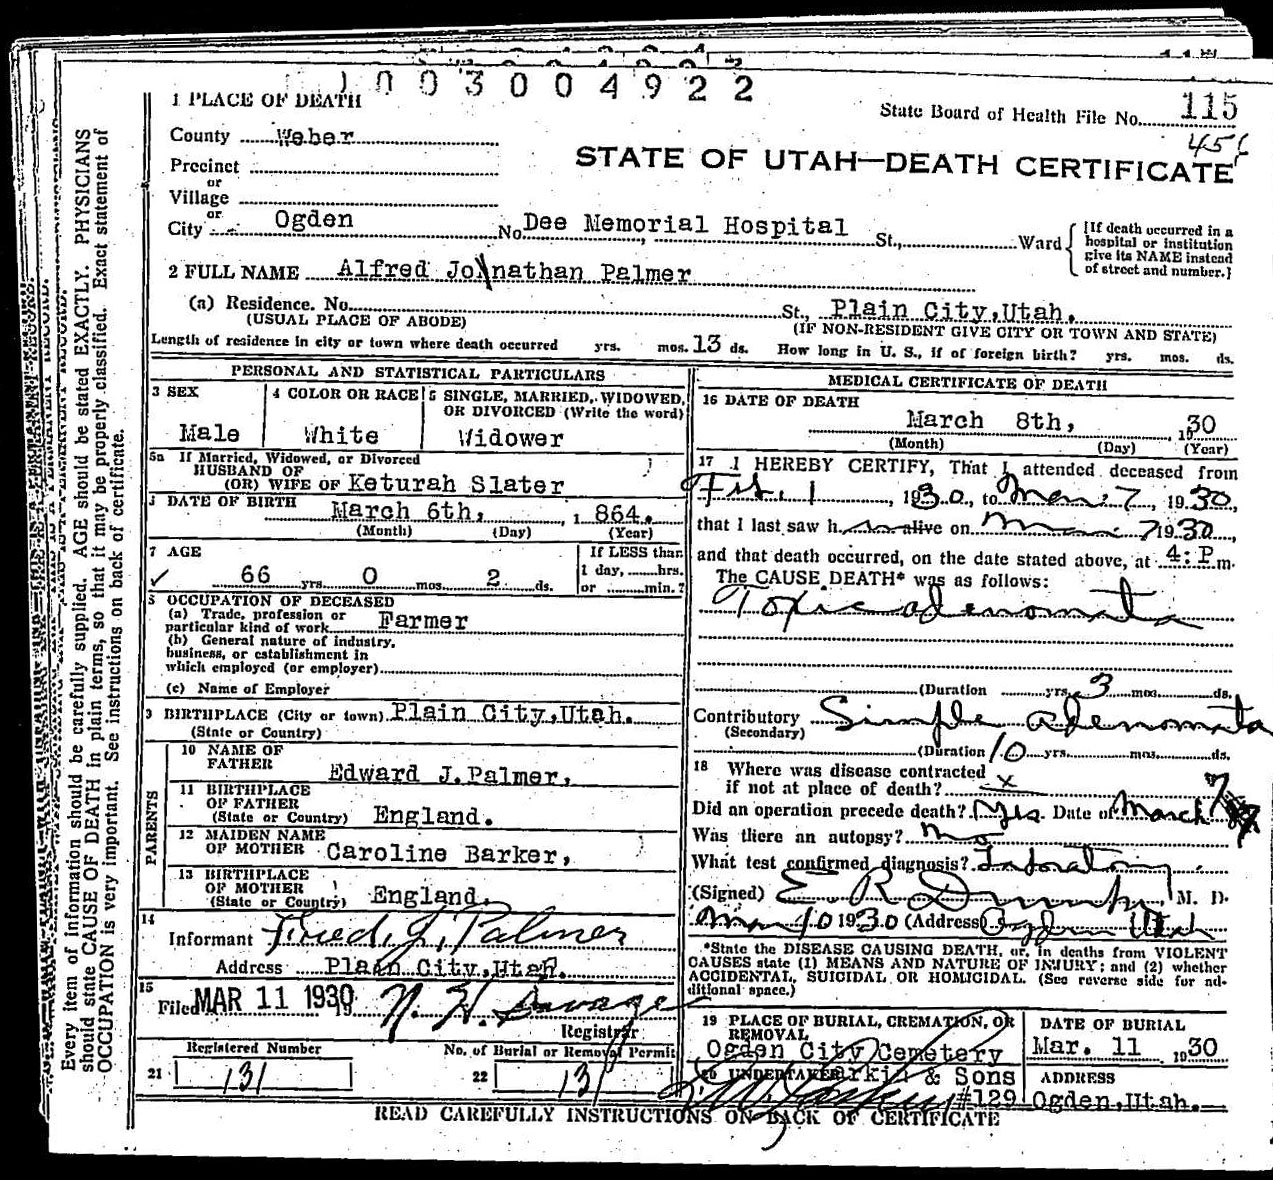 1003004922
1 PLACE OF DEATH
State Board of Health File No. 115
County Weber
456
STATE OF UTAH—DEATH CERTIFICATE
Precinct
or
Village
or
City Ogden No. Dee Memorial Hospital St., Ward
[If death occurred in a hospital or institution give its NAME instead of street and number.]
2 FULL NAME Alfred Jonathan Palmer
(a) Residence. No. St., Plain City, Utah.
(USUAL PLACE OF ABODE) (IF NON-RESIDENT GIVE CITY OR TOWN AND STATE)
Length of residence in city or town where death occurred yrs. mos. 13 ds. How long in U. S., if of foreign birth? yrs. mos. ds.
PERSONAL AND STATISTICAL PARTICULARS
3 SEX
Male
4 COLOR OR RACE
White
5 SINGLE, MARRIED, WIDOWED,
OR DIVORCED (Write the word)
Widower
5a If Married, Widowed, or Divorced
HUSBAND OF
(OR) WIFE OF Keturah Slater
DATE OF BIRTH
March 6th, 1864.
(Month) (Day) (Year)
7 AGE
66 yrs. 0 mos. 2 ds.
If LESS than
1 day, hrs.
or min.?
OCCUPATION OF DECEASED
(a) Trade, profession or
particular kind of work Farmer
(b) General nature of industry,
business, or establishment in
which employed (or employer)
(c) Name of Employer
9 BIRTHPLACE (City or town) Plain City, Utah.
(State or Country)
PARENTS
10 NAME OF
FATHER
Edward J. Palmer,
11 BIRTHPLACE
OF FATHER
(State or Country) England.
12 MAIDEN NAME
OF MOTHER Caroline Barker,
13 BIRTHPLACE
OF MOTHER
(State or Country) England.
14
Informant Fred J. Palmer
Address Plain City, Utah.
15
Filed MAR 11 1930 N. H. Savage
Registrar
Registered Number No. of Burial or Removal Permit
21 131 22 131
MEDICAL CERTIFICATE OF DEATH
16 DATE OF DEATH
March 8th, 1930
(Month) (Day) (Year)
17 I HEREBY CERTIFY, That I attended deceased from
Feb. 1, 1930, to Mar. 7, 1930,
that I last saw h alive on Mar 7 1930,
and that death occurred, on the date stated above, at 4: P m.
The CAUSE DEATH* was as follows:
Toxic adenomata
(Duration yrs. 3 mos. ds.
Contributory Simple adenomata
(Secondary)
(Duration 10 yrs. mos. ds.
18 Where was disease contracted
if not at place of death? x
Did an operation precede death? Yes. Date of March 7
Was there an autopsy? no
What test confirmed diagnosis? Laboratory
(Signed) E R M. D.
Mar 10 1930 (Address Ogden Utah
*State the DISEASE CAUSING DEATH, or, in deaths from VIOLENT
CAUSES state (1) MEANS AND NATURE OF INJURY; and (2) whether
ACCIDENTAL, SUICIDAL OR HOMICIDAL. (See reverse side for ad-
ditional space.)
19 PLACE OF BURIAL, CREMATION, OR
REMOVAL
Ogden City Cemetery
DATE OF BURIAL
Mar. 11 1930
20 UNDERTAKER Larkin & Sons
#129
ADDRESS
Ogden, Utah.
READ CAREFULLY INSTRUCTIONS ON BACK OF CERTIFICATE
Every item of information should be carefully supplied. AGE should be stated EXACTLY. PHYSICIANS
should state CAUSE OF DEATH in plain terms, so that it may be properly classified. Exact statement of
OCCUPATION is very important. See instructions on back of certificate.